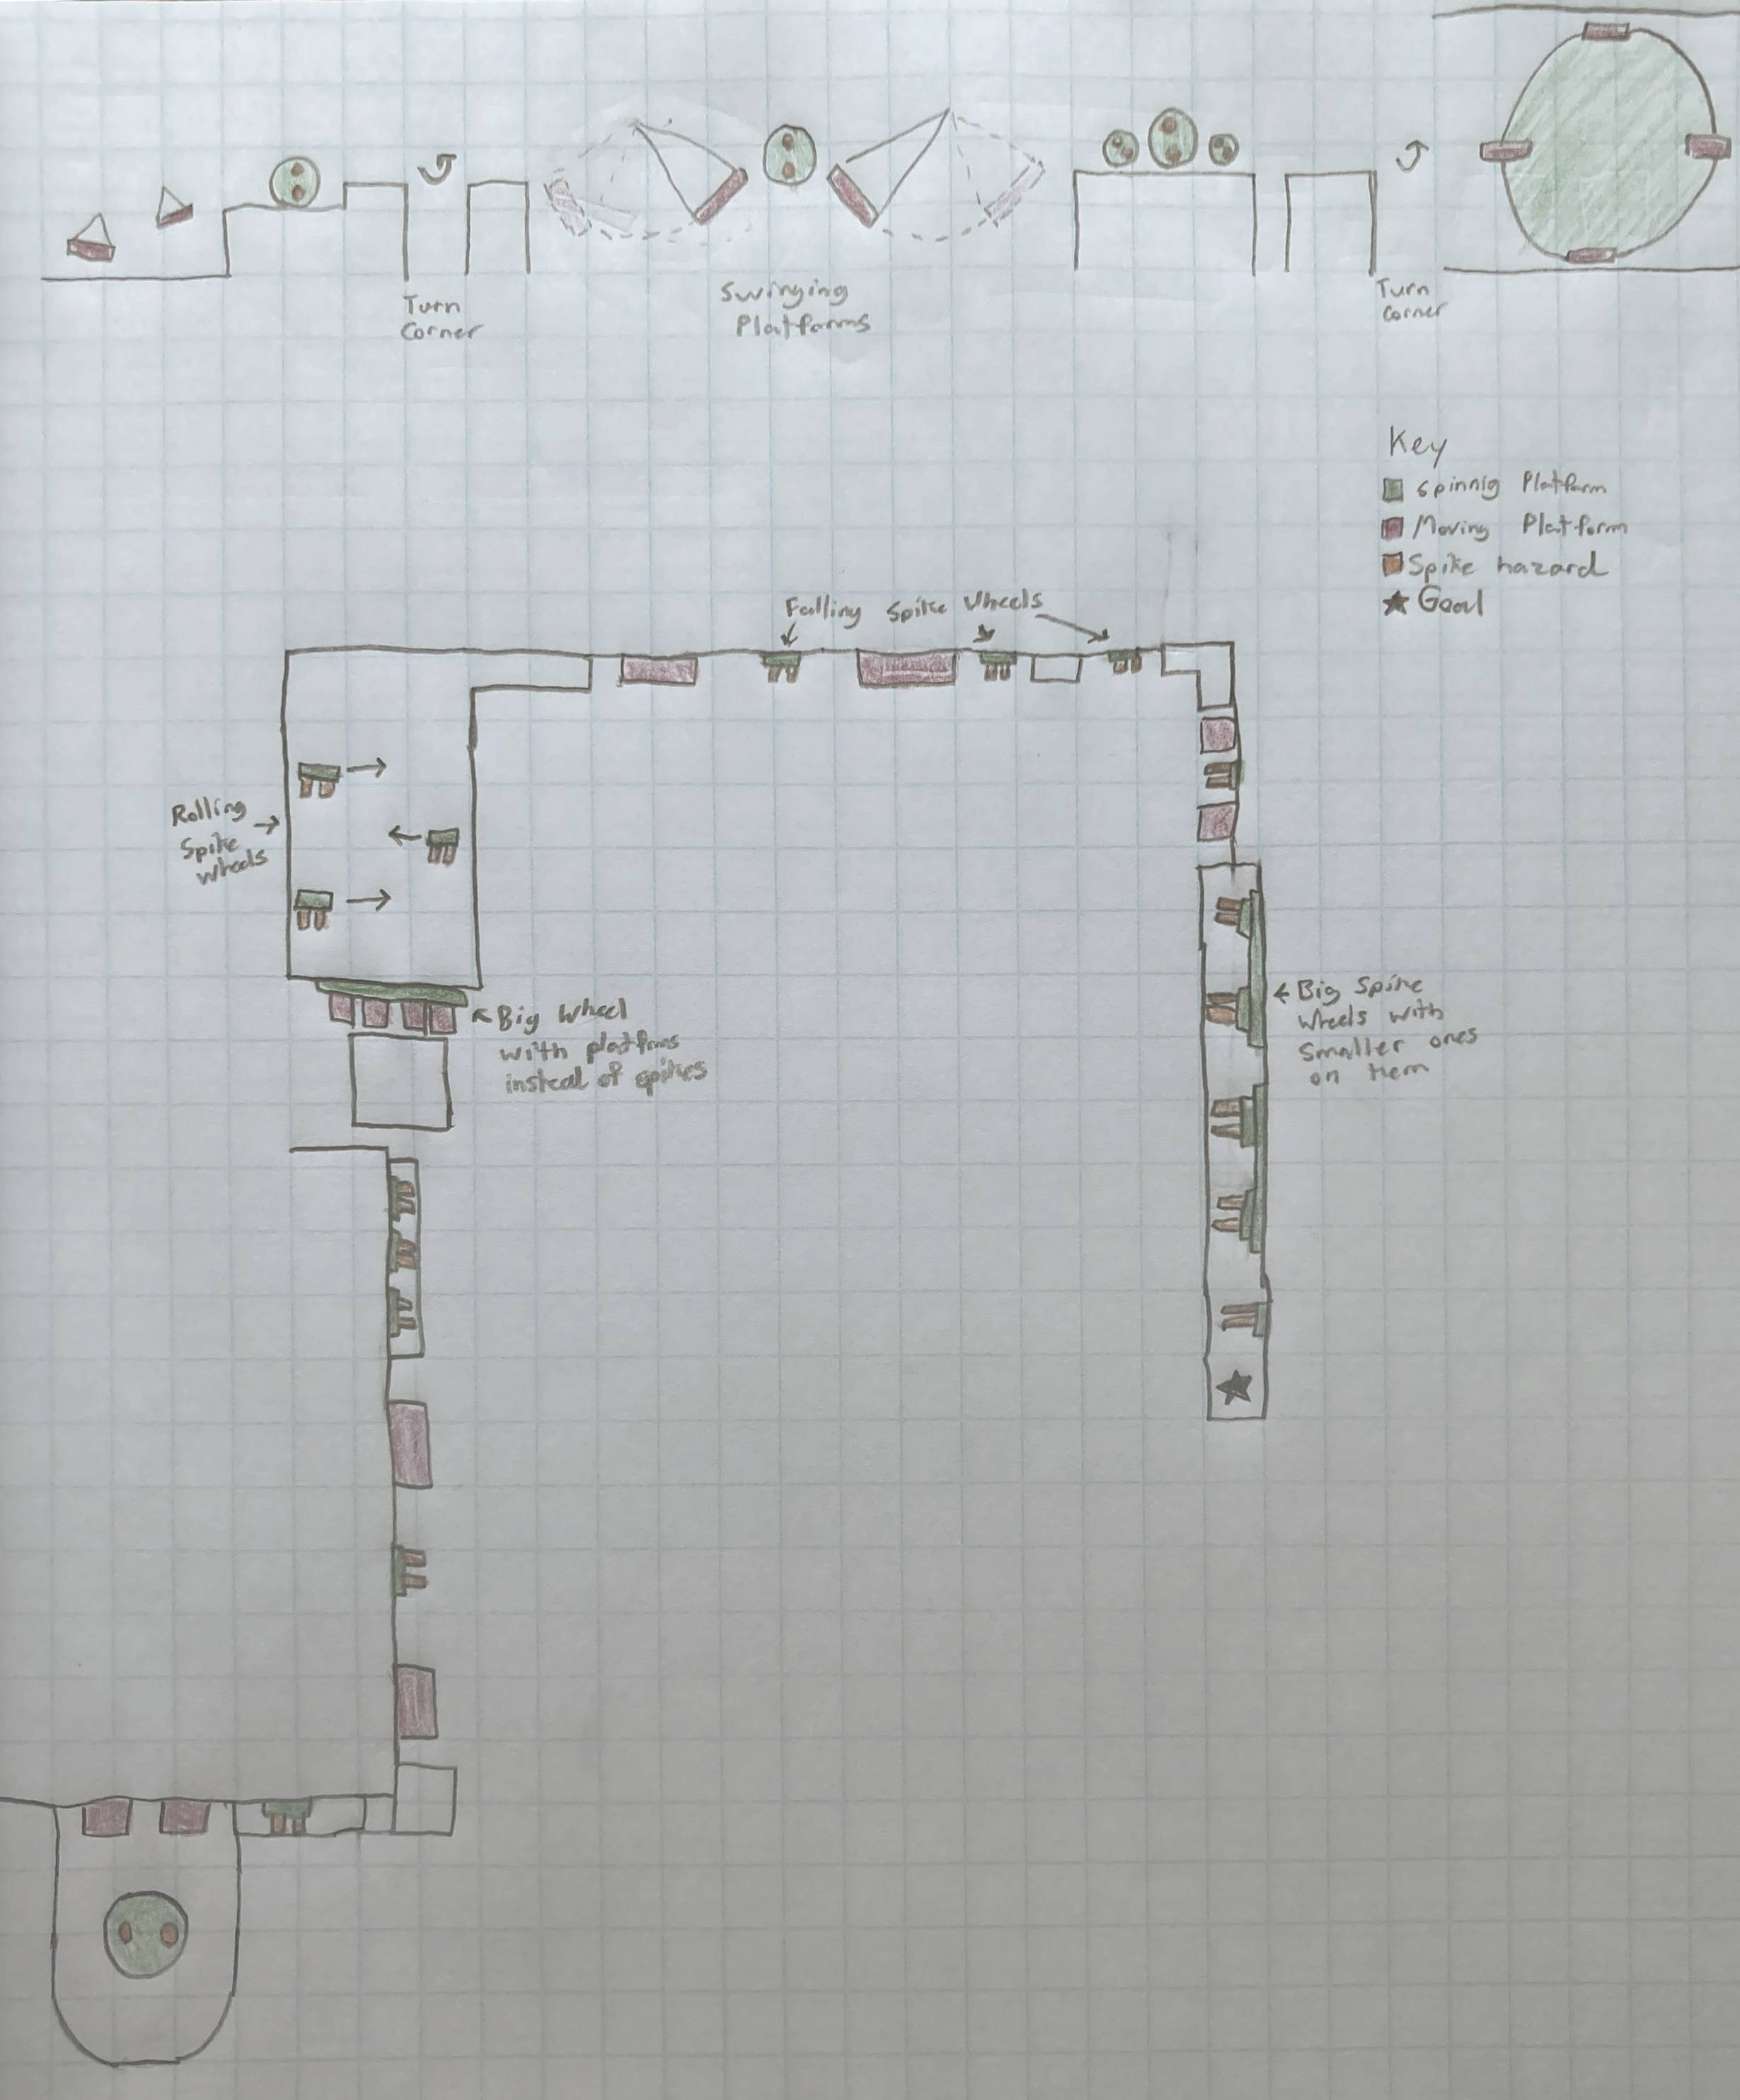 Turn
Corner
Swinging
Platforms
Turn
Corner
Key
Spinnig Platform
Moving Platform
Spike hazard
Goal
Falling Spike Wheels
Rolling
Spike
Wheels
Big Wheel
with platfms
insteal of spikes
Big Spike
Wheels with
Smaller ones
on them